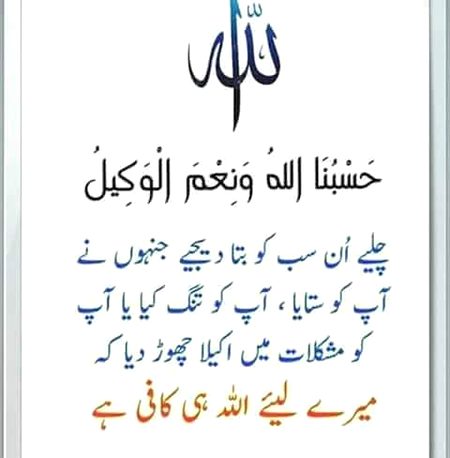 الله
حَسْبُنَا اللهُ وَنِعْمَ الْوَكِيلُ
چلیے اُن سب کو بتا دیجیے جنہوں نے
آپ کو ستایا، آپ کو تنگ کیا یا آپ
کو مشکلات میں اکیلا چھوڑ دیا کہ
میرے لیئے اللہ ہی کافی ہے